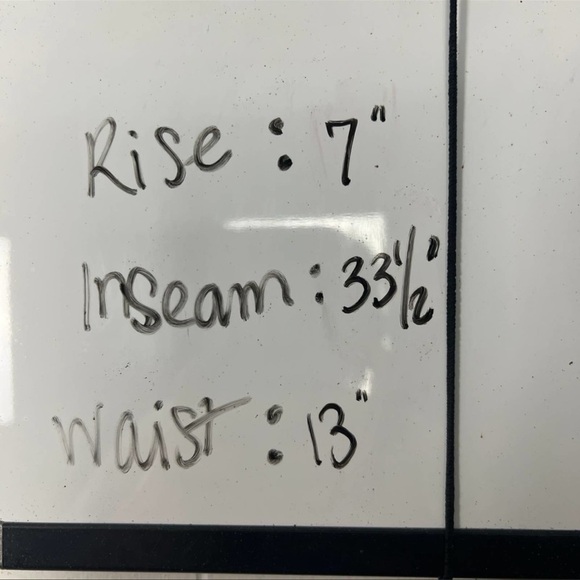 Rise : 7"
Inseam : 33 1/2"
Waist : 13"